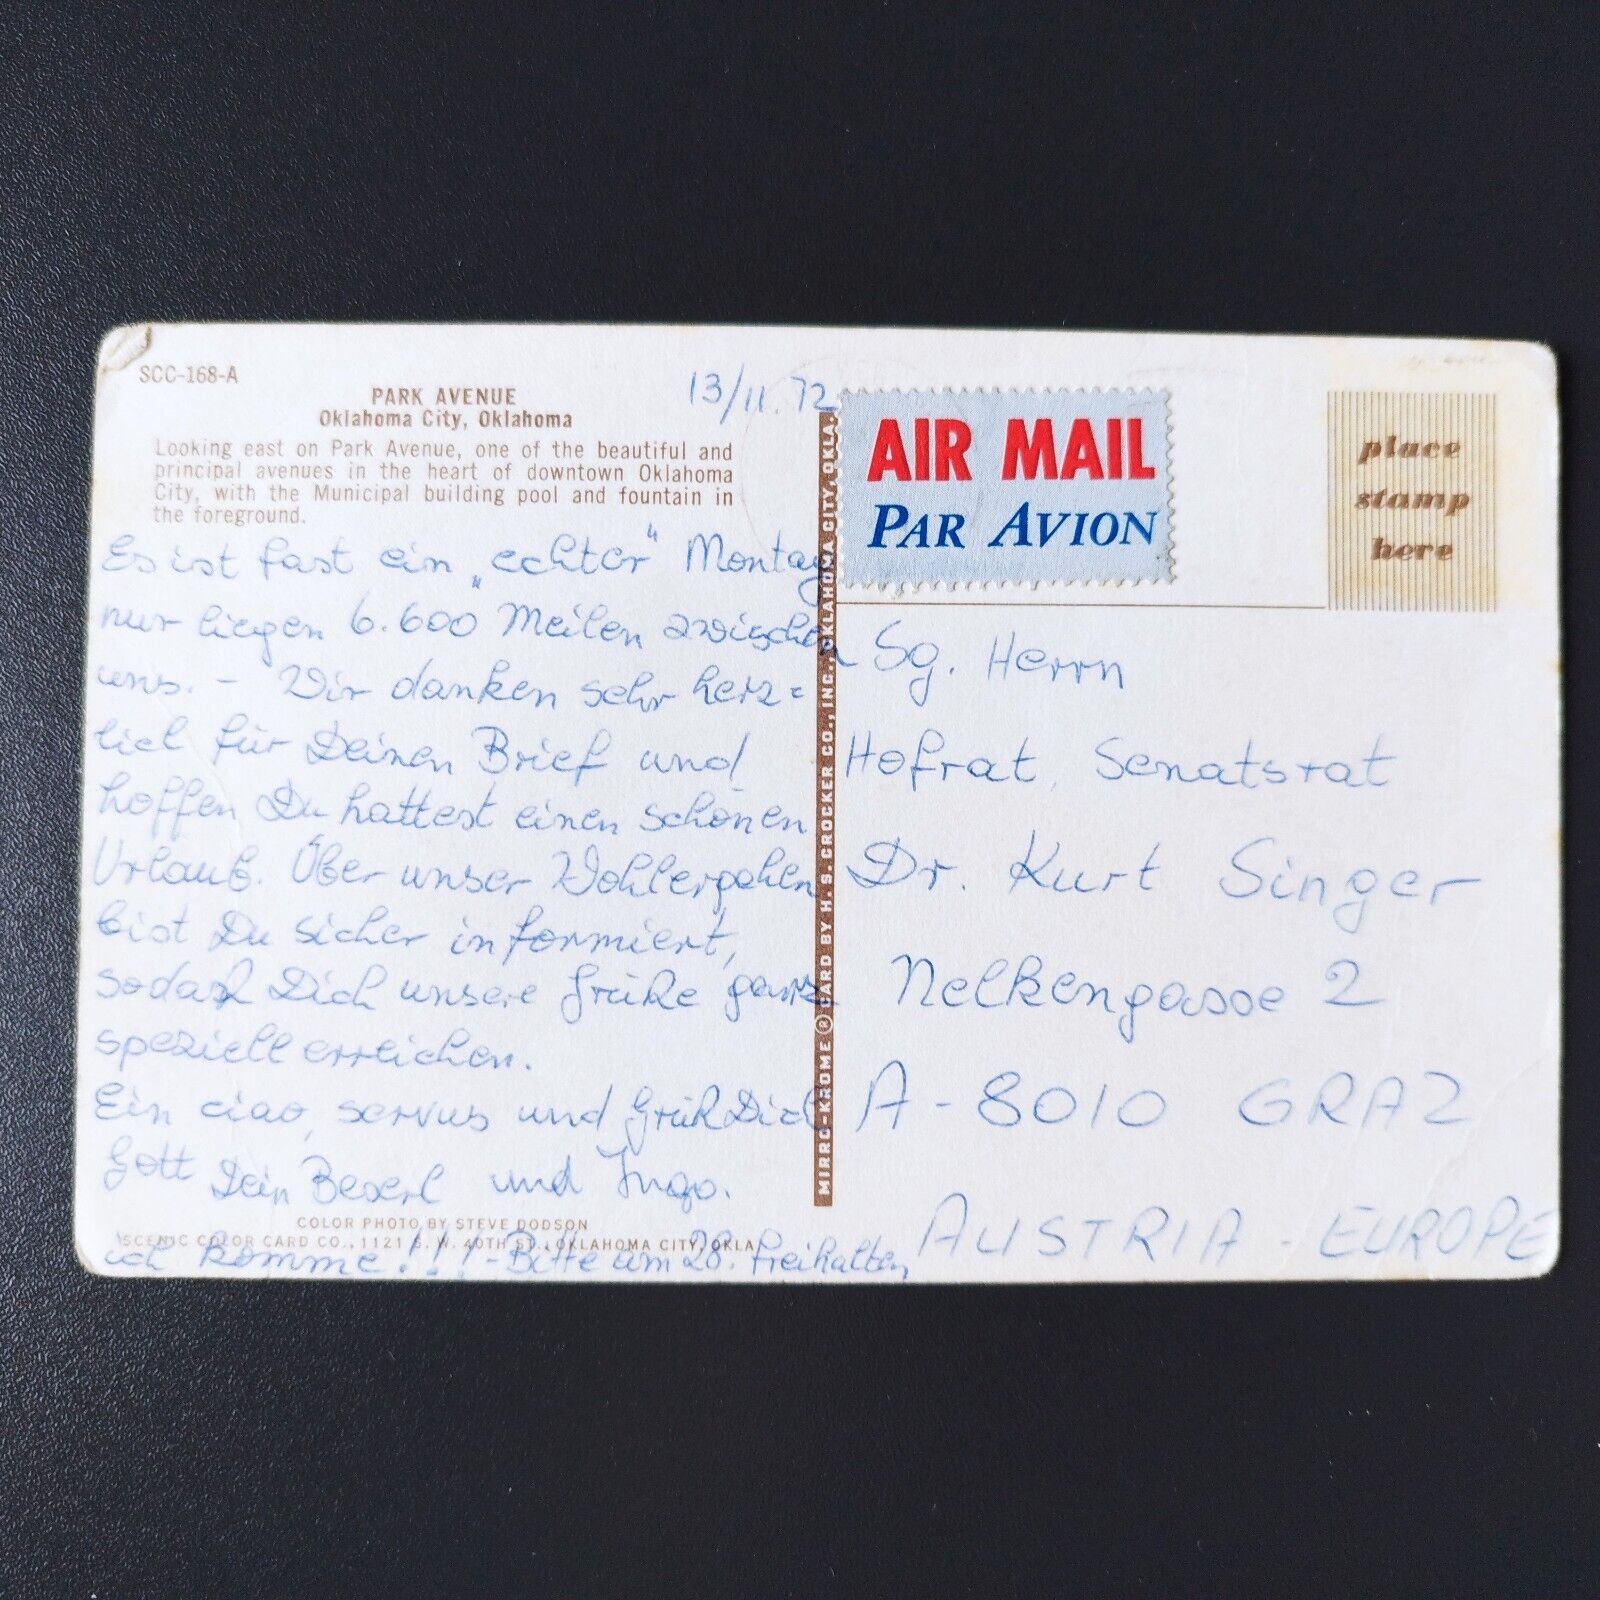 SCC-168-A
PARK AVENUE
Oklahoma City, Oklahoma
Looking east on Park Avenue, one of the beautiful and
principal avenues in the heart of downtown Oklahoma
City, with the Municipal building pool and fountain in
the foreground.
13/11.72
Es ist fast ein „echter“ Montag
nur liegen 6.600 Meilen zwischen
uns. - Wir danken sehr herz=
lich für Deinen Brief und
hoffen Du hattest einen schönen
Urlaub. Über unser Wohlergehen
bist Du sicher informiert,
sodaß Dich unsere Grüße ganz
speziell erreichen.
Ein ciao, servus und Grüß Dich
Gott Dein Beserl und Ingo.
COLOR PHOTO BY STEVE DODSON
SCENIC COLOR CARD CO., 1121 S. W. 40TH ST., OKLAHOMA CITY, OKLA.
ich komme!!! - Bitte um 28. freihalten
MIRRO-KROME ® CARD BY H. S. CROCKER CO., INC., OKLAHOMA CITY, OKLA.
AIR MAIL
PAR AVION
place
stamp
here
Sg. Herrn
Hofrat, Senatsrat
Dr. Kurt Singer
Nelkengasse 2
A-8010 GRAZ
AUSTRIA - EUROPE